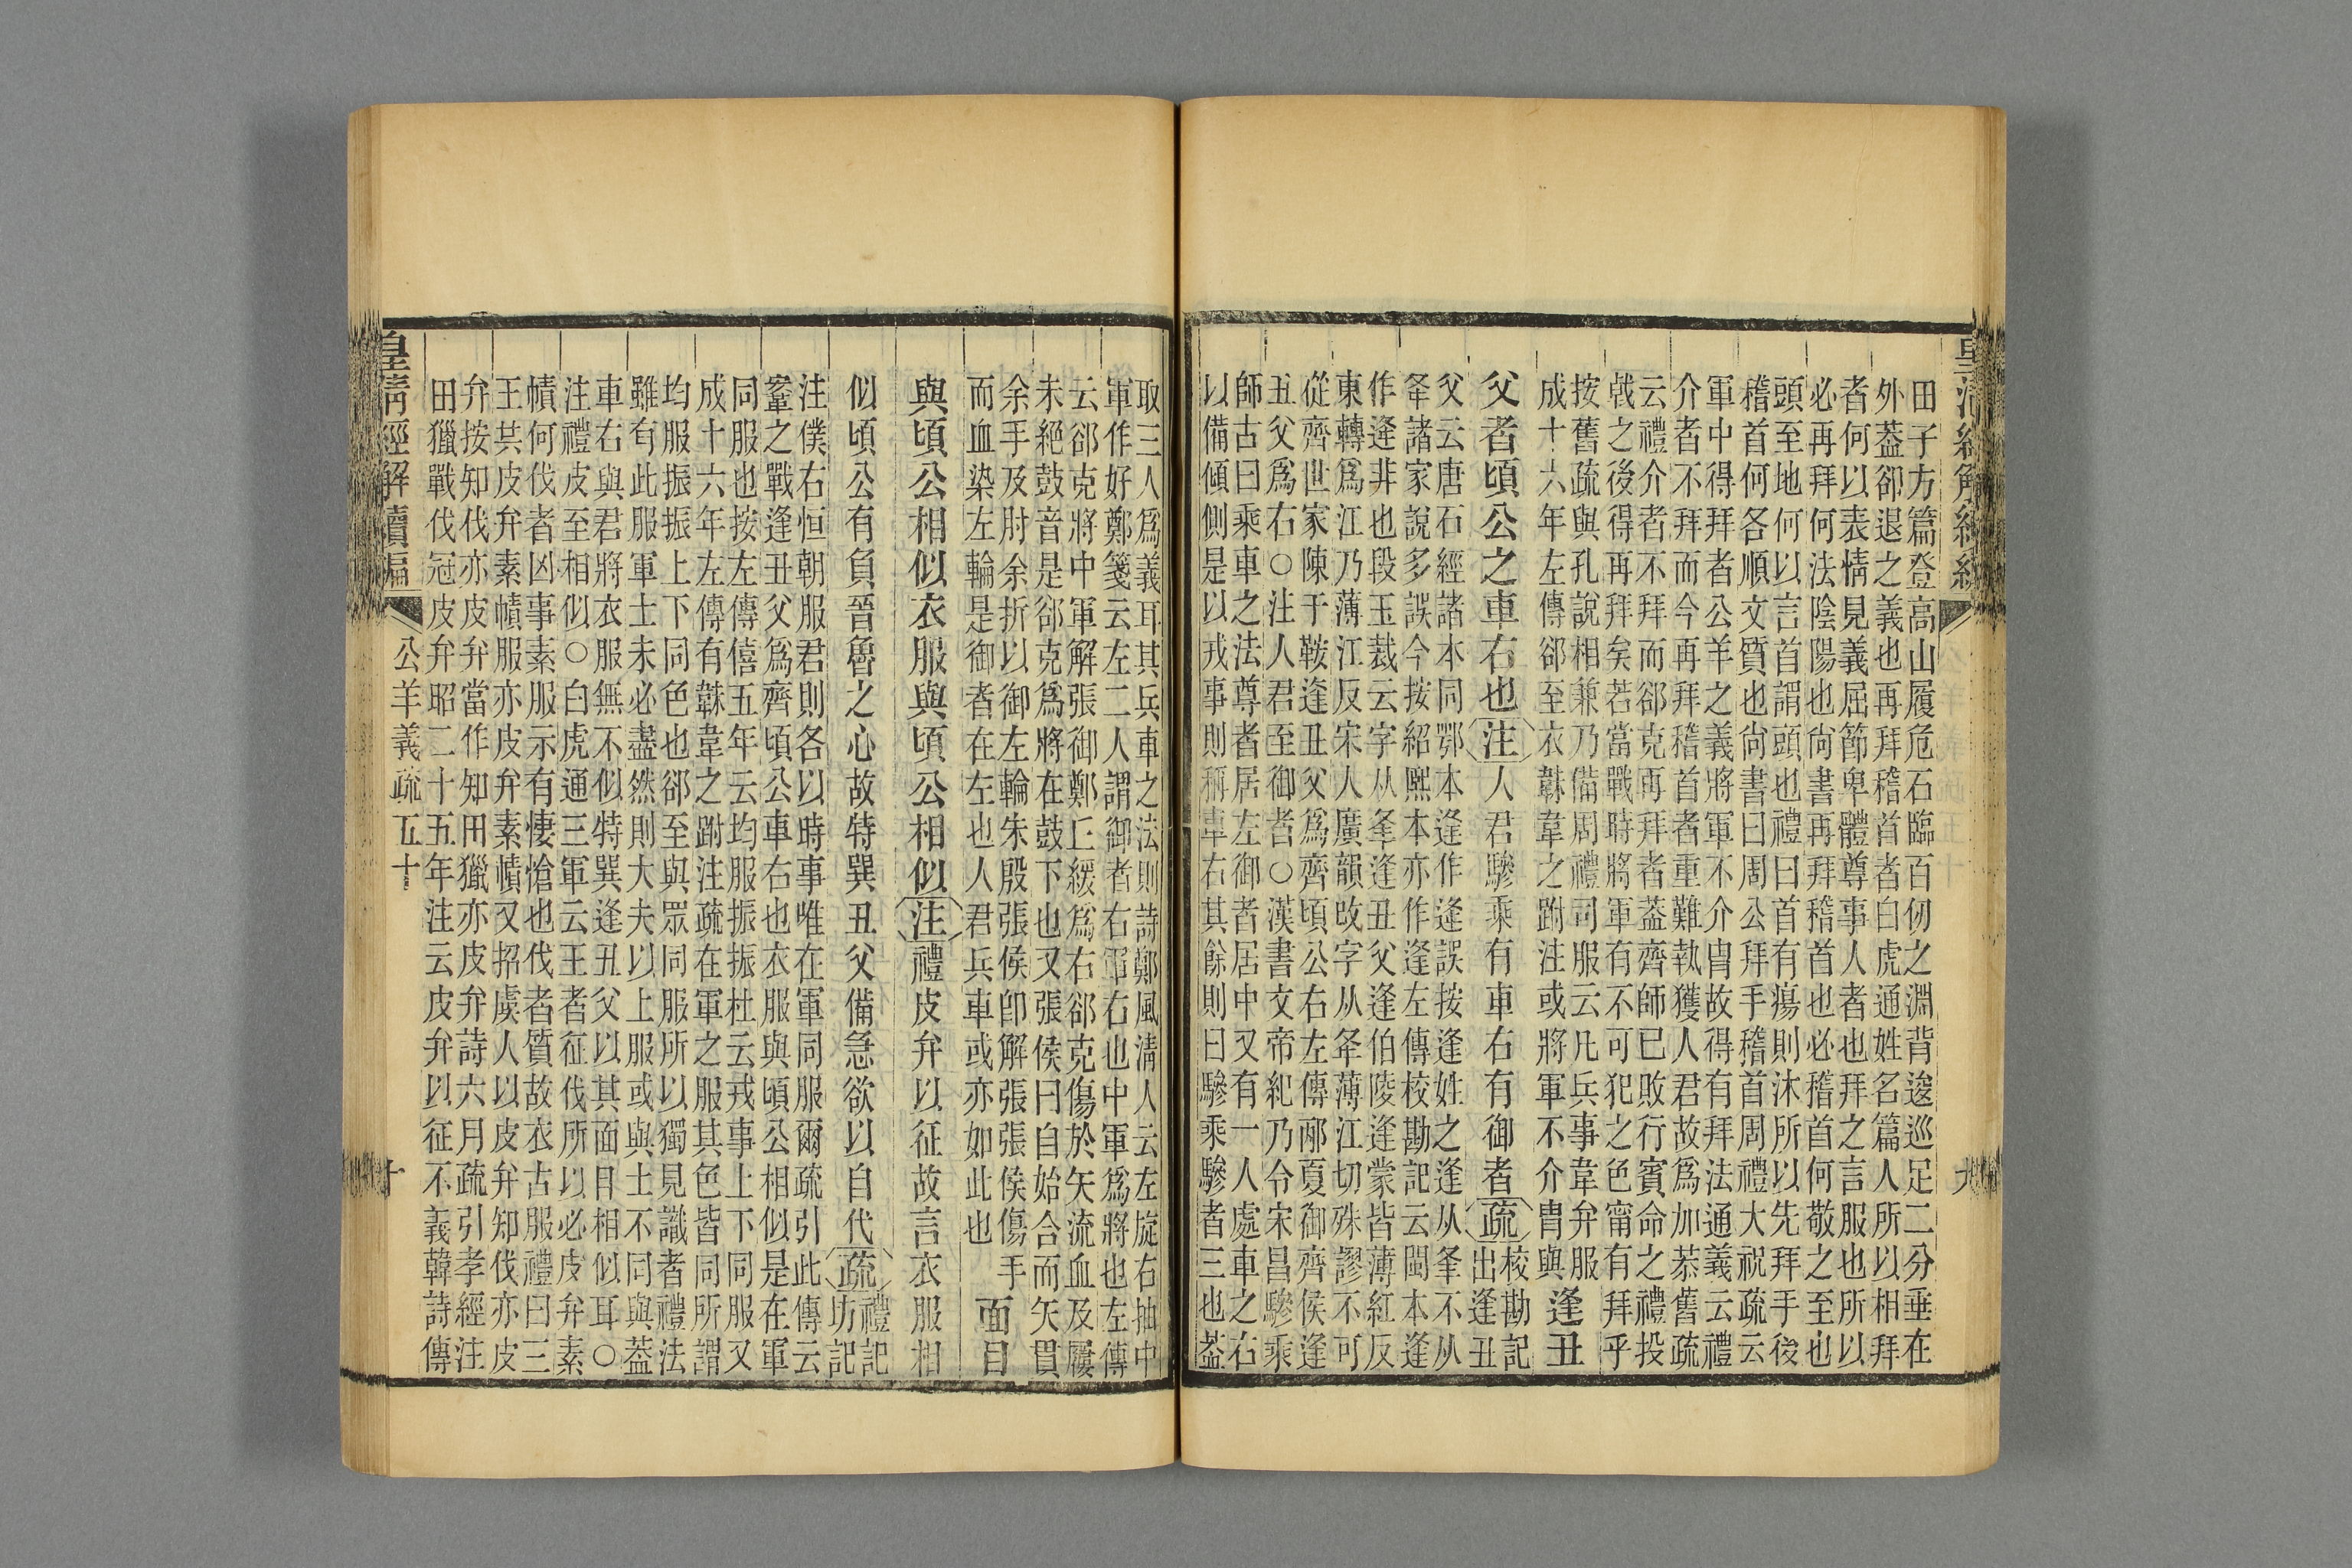 田子方篇登高山履危石臨百仞之淵背逡巡足二分垂在
外葢卻退之義也再拜稽首者白虎通姓名篇人所以相拜
者何以表情見義屈節卑體尊事人者也拜之言服也所以
必再拜何法陰陽也尙書再拜稽首也必稽首何敬之至也
頭至地何以言首謂頭也禮曰首有瘍則沐所以先拜手後
稽首何各順文質也尙書曰周公拜手稽首周禮大祝疏云
軍中得拜者公羊之義將軍不介冑故得有拜法通義云禮
介者不拜而今再拜稽首者重難執獲人君故爲加恭舊疏
云禮介者不拜而郤克再拜者葢齊師已敗行賓命之禮投
戟之後得再拜矣若當戰時將軍有不可犯之色甯有拜乎
按舊疏與孔說相兼乃備周禮司服云凡兵事韋弁服
成十六年左傳郤至衣韎韋之跗注或將軍不介冑與
逢丑
父者頃公之車右也注人君驂乘有車右有御者疏
校勘記
出逢丑
父云唐石經諸本同鄂本逢作逄誤按逢姓之逢从夆不从
夅諸家說多誤今按紹熙本亦作逢左傳校勘記云閩本逢
作逄非也段玉裁云字从夆逢丑父逢伯陵逢蒙皆薄紅反
東轉爲江乃薄江反宋人廣韻改字从夅薄江切殊謬不可
從齊世家陳于鞍逢丑父爲齊頃公右左傳邴夏御齊侯逢
丑父爲右○注人君至御者○漢書文帝紀乃令宋昌驂乘
師古曰乘車之法尊者居左御者居中又有一人處車之右
以備傾側是以戎事則稱車右其餘則曰驂乘驂者三也葢
取三人爲義耳其兵車之法則詩鄭風淸人云左旋右抽中
軍作好鄭箋云左二人謂御者右軍右也中軍爲將也左傳
云郤克將中軍解張御鄭丘緩爲右郤克傷於矢流血及屨
未絕鼓音是郤克爲將在鼓下也又張侯曰自始合而矢貫
余手及肘余折以御左輪朱殷張侯卽解張張侯傷手
而血染左輪是御者在左也人君兵車或亦如此也
面目
與頃公相似衣服與頃公相似注禮皮弁以征故言衣服相
似頃公有負晉魯之心故特巽丑父備急欲以自代疏
禮記
坊記
注僕右恒朝服君則各以時事唯在軍同服爾疏引此傳云
鞌之戰逢丑父爲齊頃公車右也衣服與頃公相似是在軍
同服也按左傳僖五年云均服振振杜云戎事上下同服又
成十六年左傳有韎韋之跗注疏在軍之服其色皆同所謂
均服振振上下同色也郤至與眾同服所以獨見識者禮法
雖有此服軍士未必盡然則大夫以上服或與士不同與葢
車右與君將衣服無不似特巽逢丑父以其面目相似耳○
注禮皮至相似○白虎通三軍云王者征伐所以必皮弁素
幘何伐者凶事素服示有悽愴也伐者質故衣古服禮曰三
王共皮弁素幘服亦皮弁素幘又招虞人以皮弁知伐亦皮
弁按知伐亦皮弁當作知田獵亦皮弁詩六月疏引孝經注
田獵戰伐冠皮弁昭二十五年注云皮弁以征不義韓詩傳
皇淸經解續編
公羊義疏五十
十